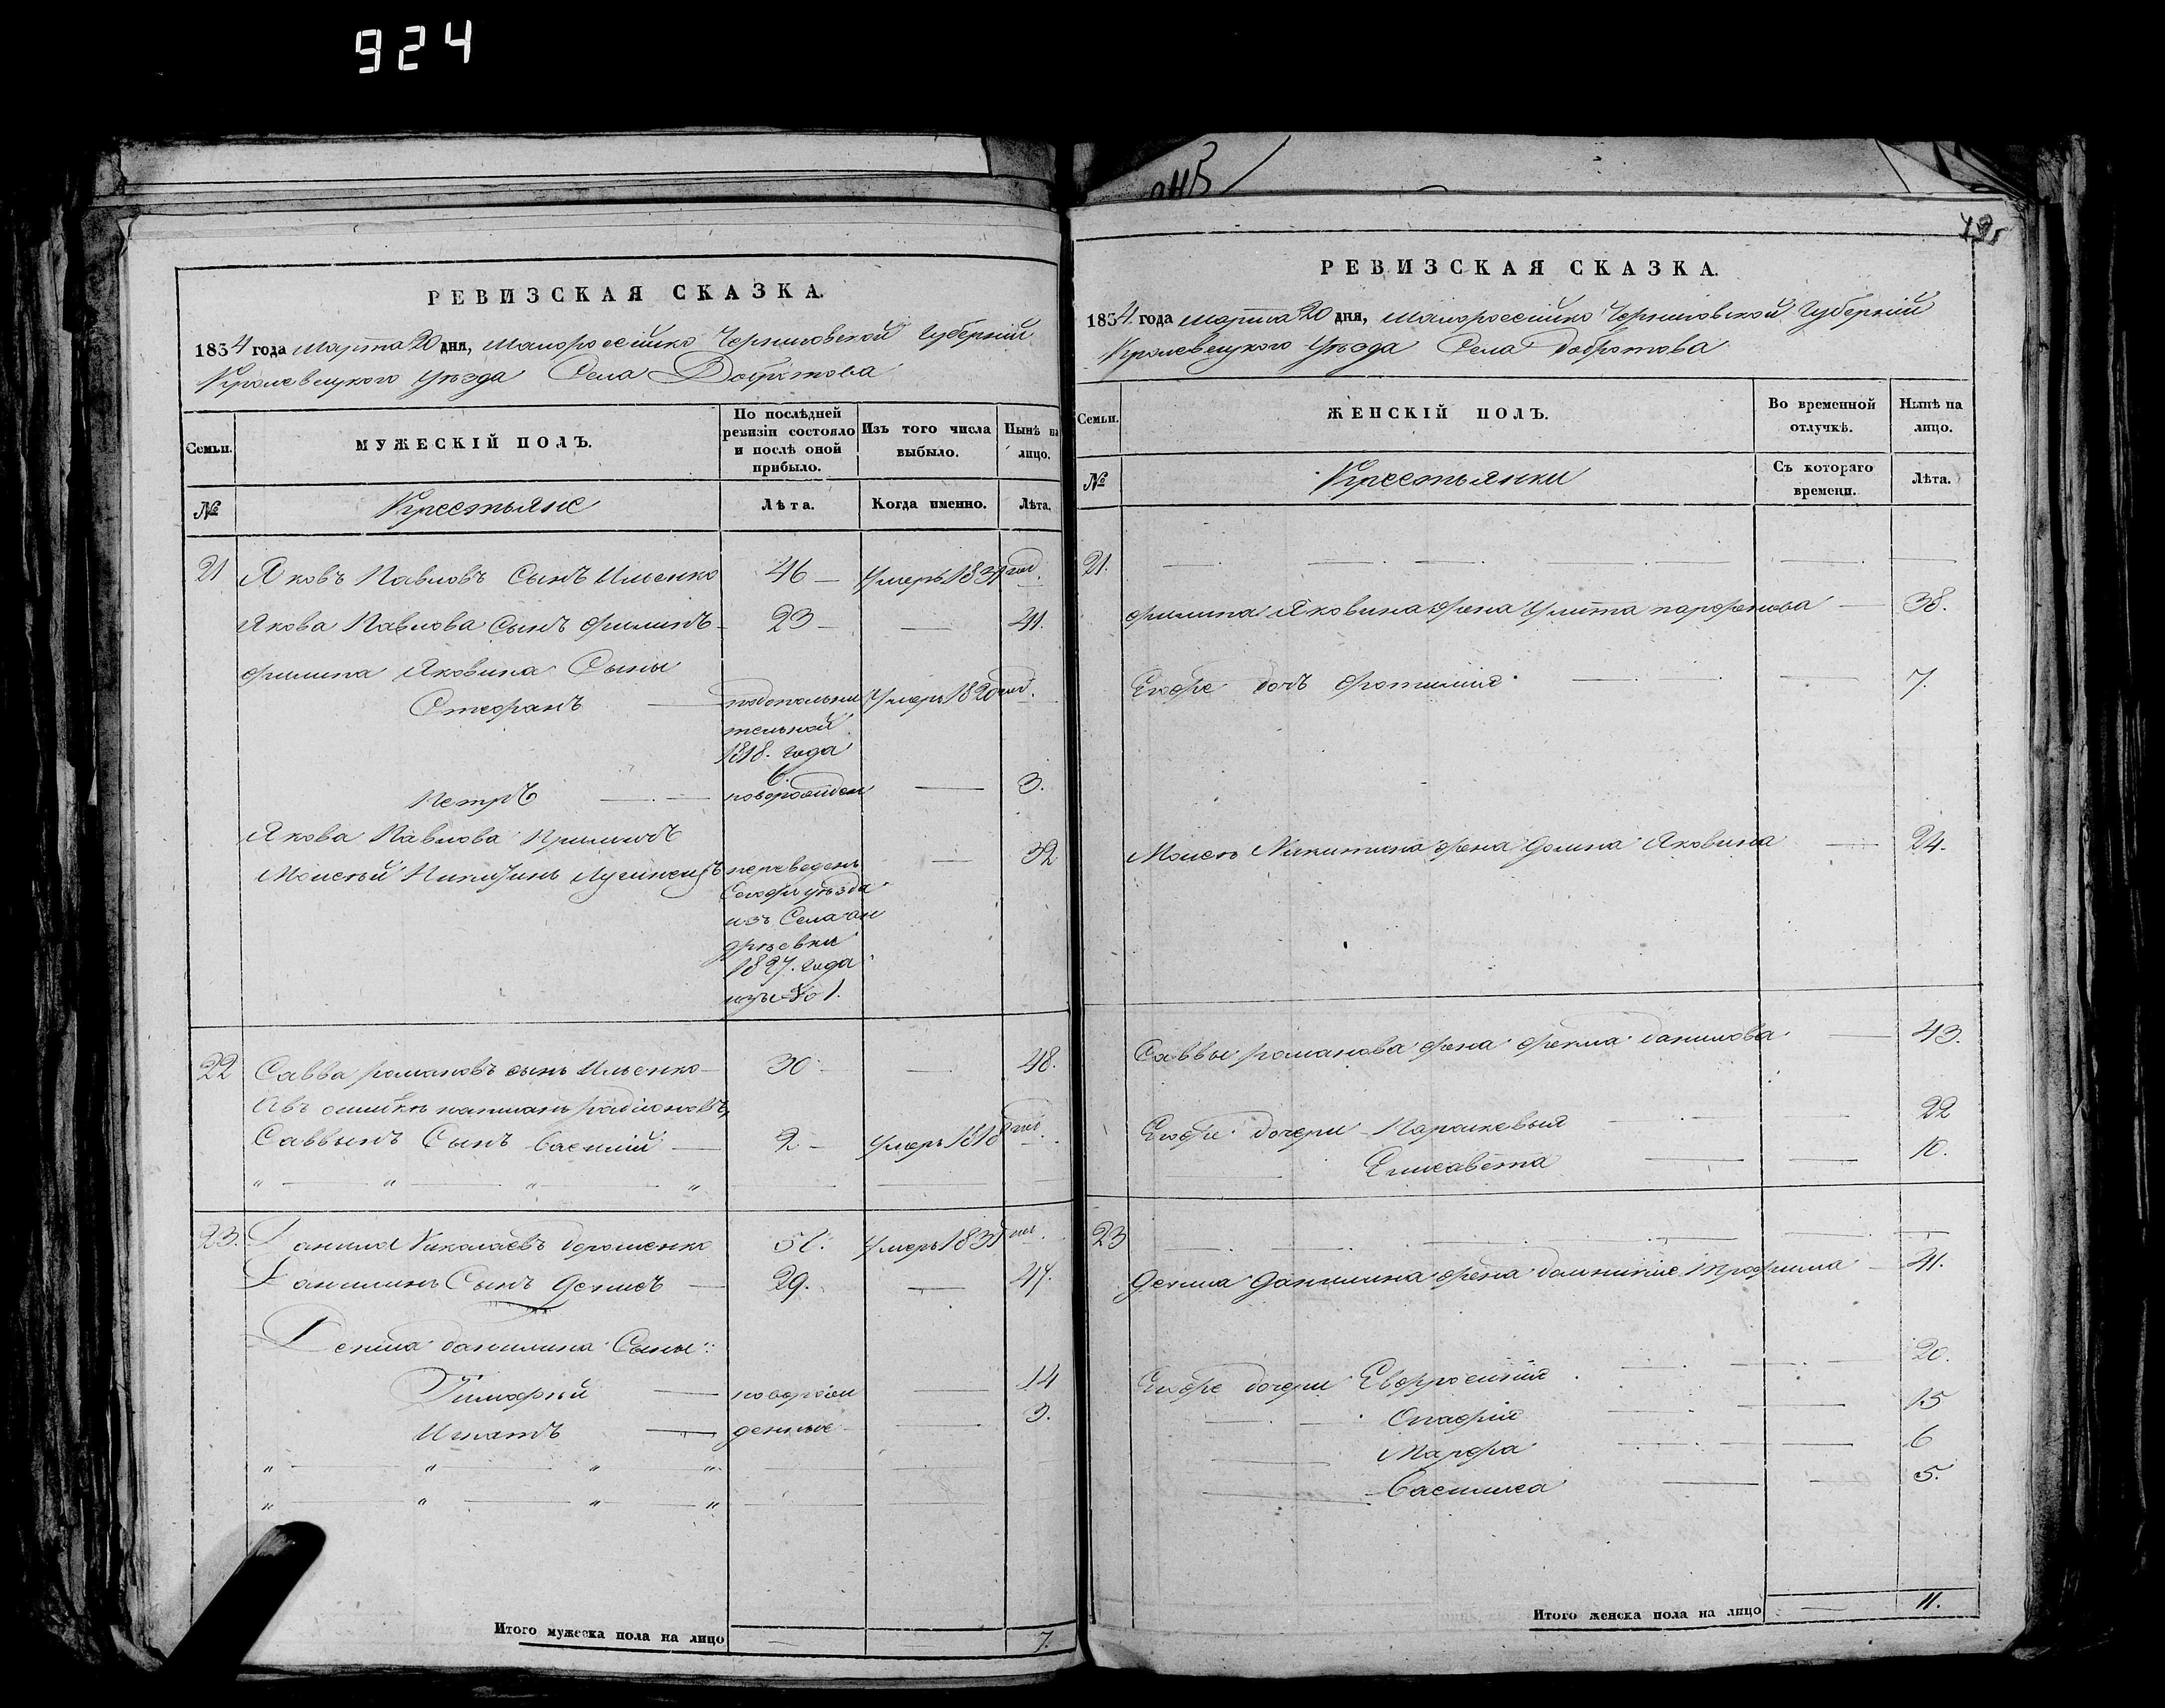 924
РЕВИЗСКАЯ СКАЗКА.
1834 года Марта 20 дня, Малороссійско Черниговской Губерніи
Кролевецкого Уѣзда Села Добротова
Семьи.
МУЖЕСКІЙ ПОЛЪ.
По послѣдней ревизіи состояло и послѣ оной прибыло.
Изъ того числа выбыло.
Нынѣ на лицо.
№
Крестьяне
Лѣта.
Когда именно.
Лѣта.
21 Яковъ Павловъ Сынъ Ильенко 46 — Умеръ 1831 год.
Якова Павлова Сынъ Филипъ 23 — — 41.
Филипа Яковина Сыны
Стефанъ — подополни Умеръ 1820 год.
тельной
1818. года
6.
Петръ — новорожден — 3.
Якова Павлова Приимачъ
Моисѣй Никитинъ переведенъ — 32
Сегоже уѣзда
изъ Села ан
дрѣевки
1827. года
№ 1.
22 Савва романовъ сынъ Ильенко 30 — 48.
Авъ ошибкѣ написанъ радионовъ
Саввынъ Сынъ Василій — 2 — Умеръ 1818 год.
23. Данила Николаевъ дорошенко 58. Умеръ 1831 год.
Данилинъ Сынъ Денисъ — 29. — 47.
Дениса данилина Сыны:
Тимофѣй — новорож — 14
Игнатъ — денные — 3.
Итого мужеска пола на лицо — — 7.
РЕВИЗСКАЯ СКАЗКА.
1834 года марта 20 дня, Малороссійско Черниговской Губерніи
Кролевецкого Уѣзда Села Добротова
Семьи.
ЖЕНСКІЙ ПОЛЪ.
Во временной отлучкѣ.
Нынѣ на лицо.
№
Крестьянки
Съ котораго времени.
Лѣта.
21.
Филипа Яковина жена Улита парфенова — 38.
Егоже дочь Фотинія — 7.
Моисея Никитина жена Домна Яковина — 24.
Саввы романова жена Фекла данилова — 43.
Егоже дочери Параскевыя — 22
Елисавета — 10.
23
Дениса Данилина жена домникия Трофима — 41.
Егоже дочери Евфросинія — 20.
Агафія — 15
Марфа — 6
Василиса — 5.
Итого женска пола на лицо — 11.